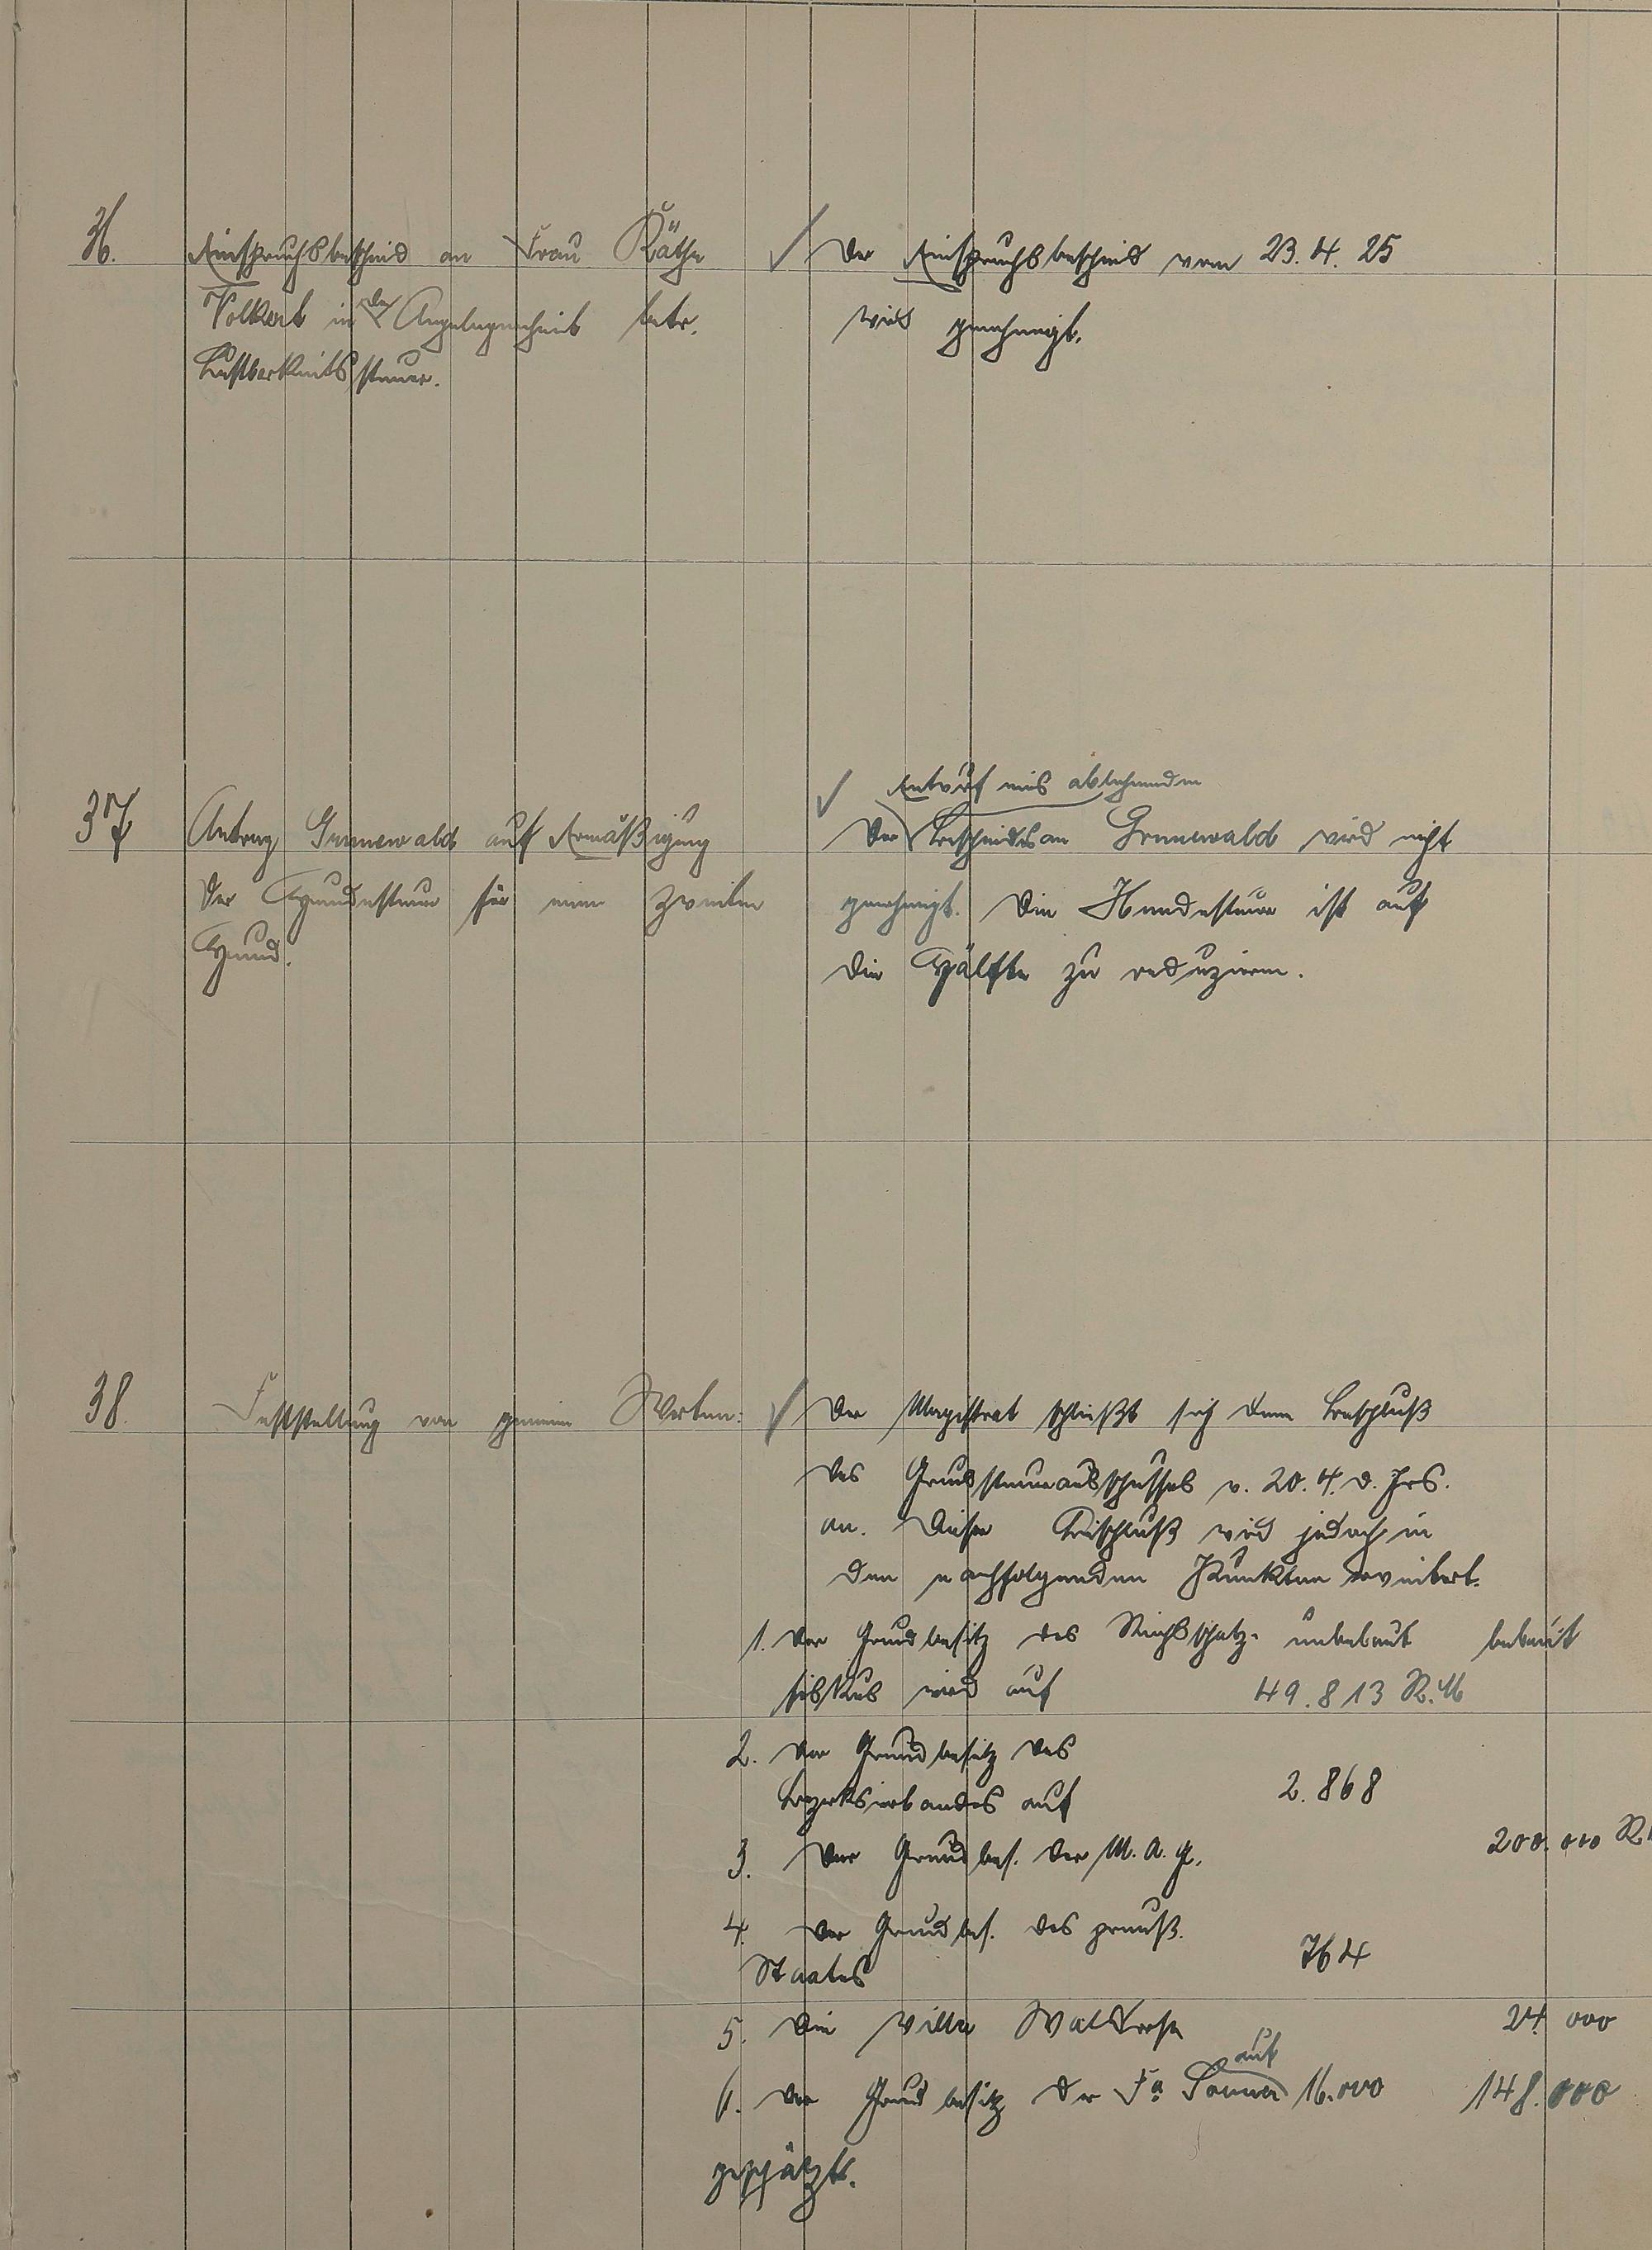 36.
Einspruchsbescheid an Frau Käthe
Volkert in der Angelegenheit betr.
Lustbarkeitssteuer.
✓ Der Einspruchsbescheid vom 23.4.25
wird genehmigt.
37
Antrag Grunewald auf Ermäßigung
der Hundesteuer für einen zweiten
Hund.
✓ Entwurf eines ablehnenden
Der Bescheides an Grunewald wird nicht
genehmigt. Die Hundesteuer ist auf
die Hälfte zu reduzieren.
38.
Feststellung von gemeinen Werten:
✓ Der Magistrat schließt sich dem Beschluß
des Grundsteuerausschusses v. 20.4. d. Jrs.
an. Dieser Beschluß wird jedoch in
den nachfolgenden Punkten erweitert.
1. Der Grundbesitz des Reichsschatz- unbebaut bebaut
fiskus wird auf 49.813 R.M
2. Der Grundbesitz des
Bezirksverbandes auf 2.868
3. Der Grundbes. der M.A.G. 200.000 R
4. Der Grundbes. des preuß.
Staates 764
5. Die Villa 24.000
6. Der Grundbesitz der Fa auf 16.000 148.000
geschätzt.